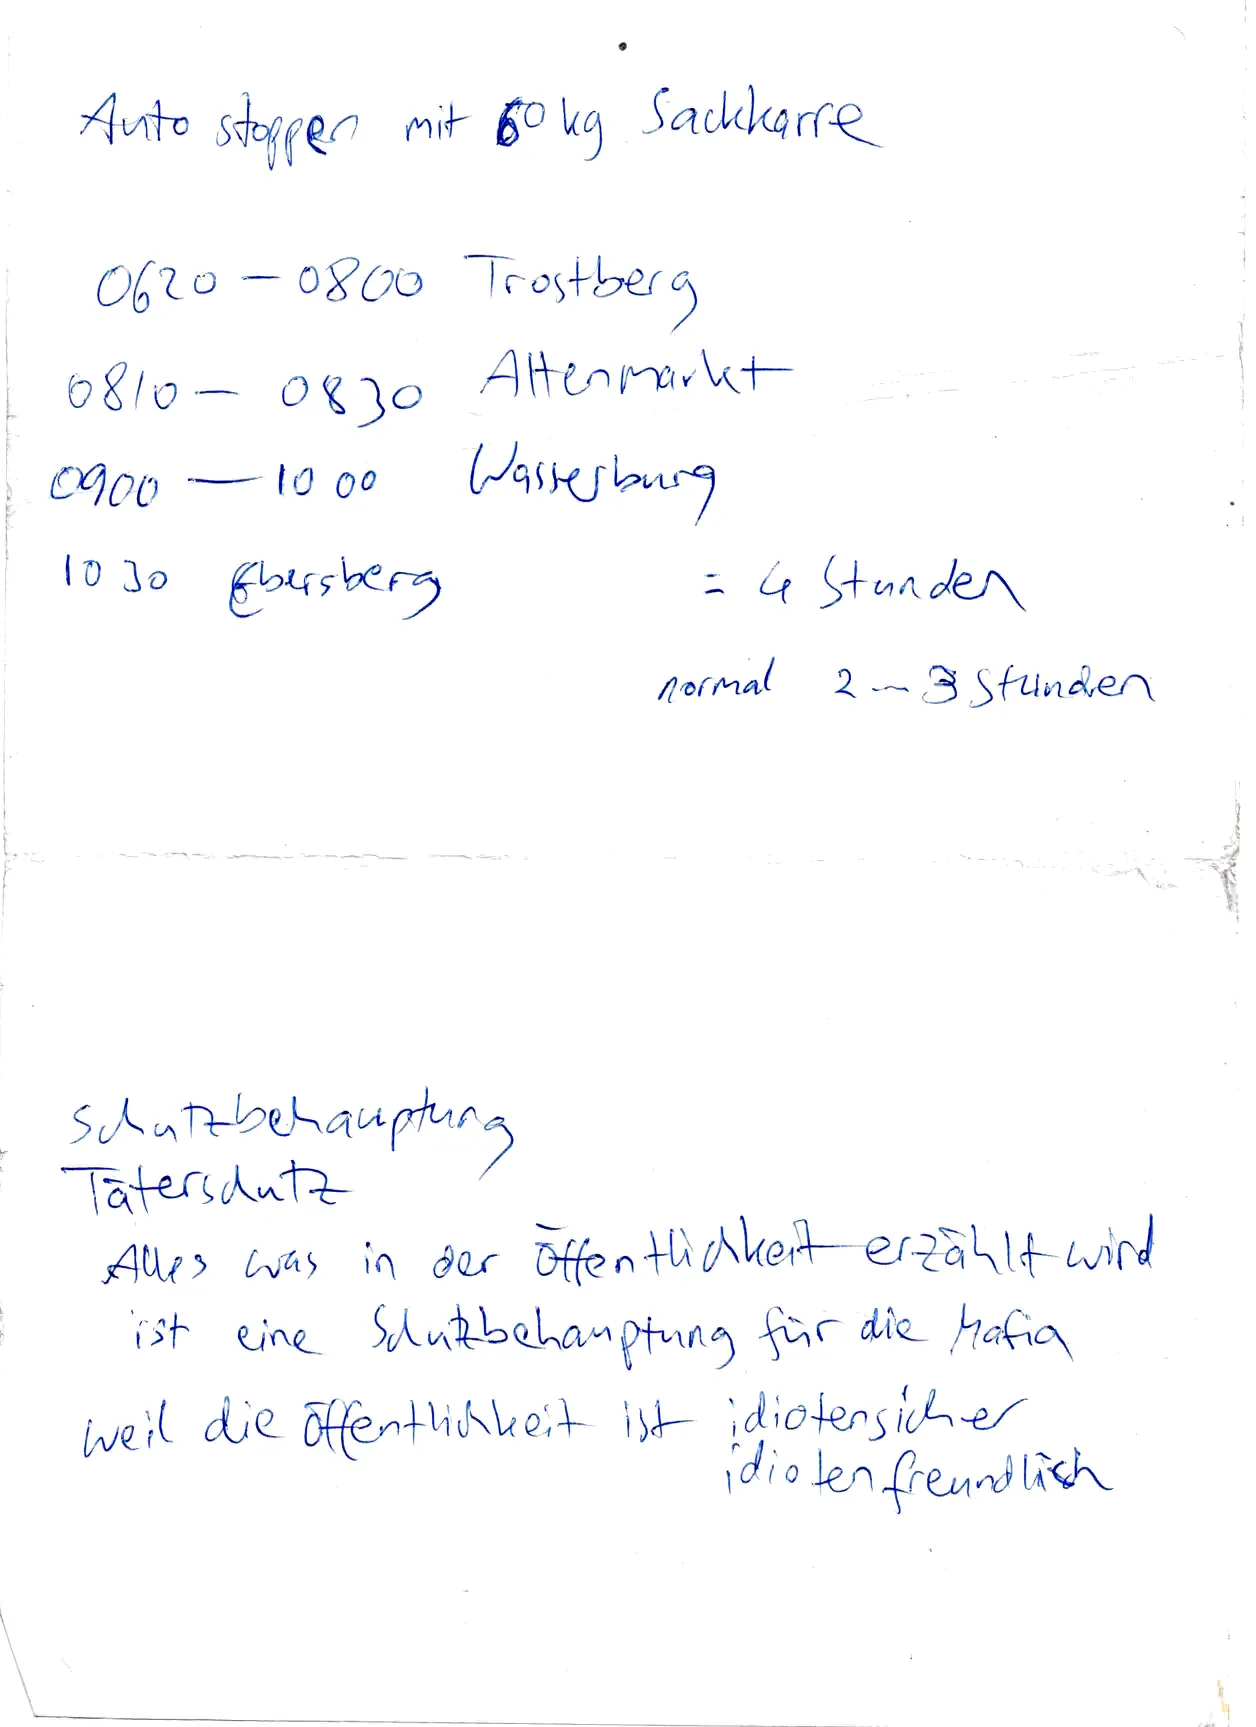 Auto stoppen mit 60 kg Sackkarre
0620 – 0800 Trostberg
0810 – 0830 Altenmarkt
0900 – 10 00 Wasserburg
10 30 Ebersberg = 4 Stunden
normal 2 – 3 Stunden
Schutzbehauptung
Täterschutz
Alles was in der öffentlichkeit erzählt wird
ist eine Schutzbehauptung für die Mafia
weil die öffentlichkeit ist idiotensicher
idiotenfreundlich